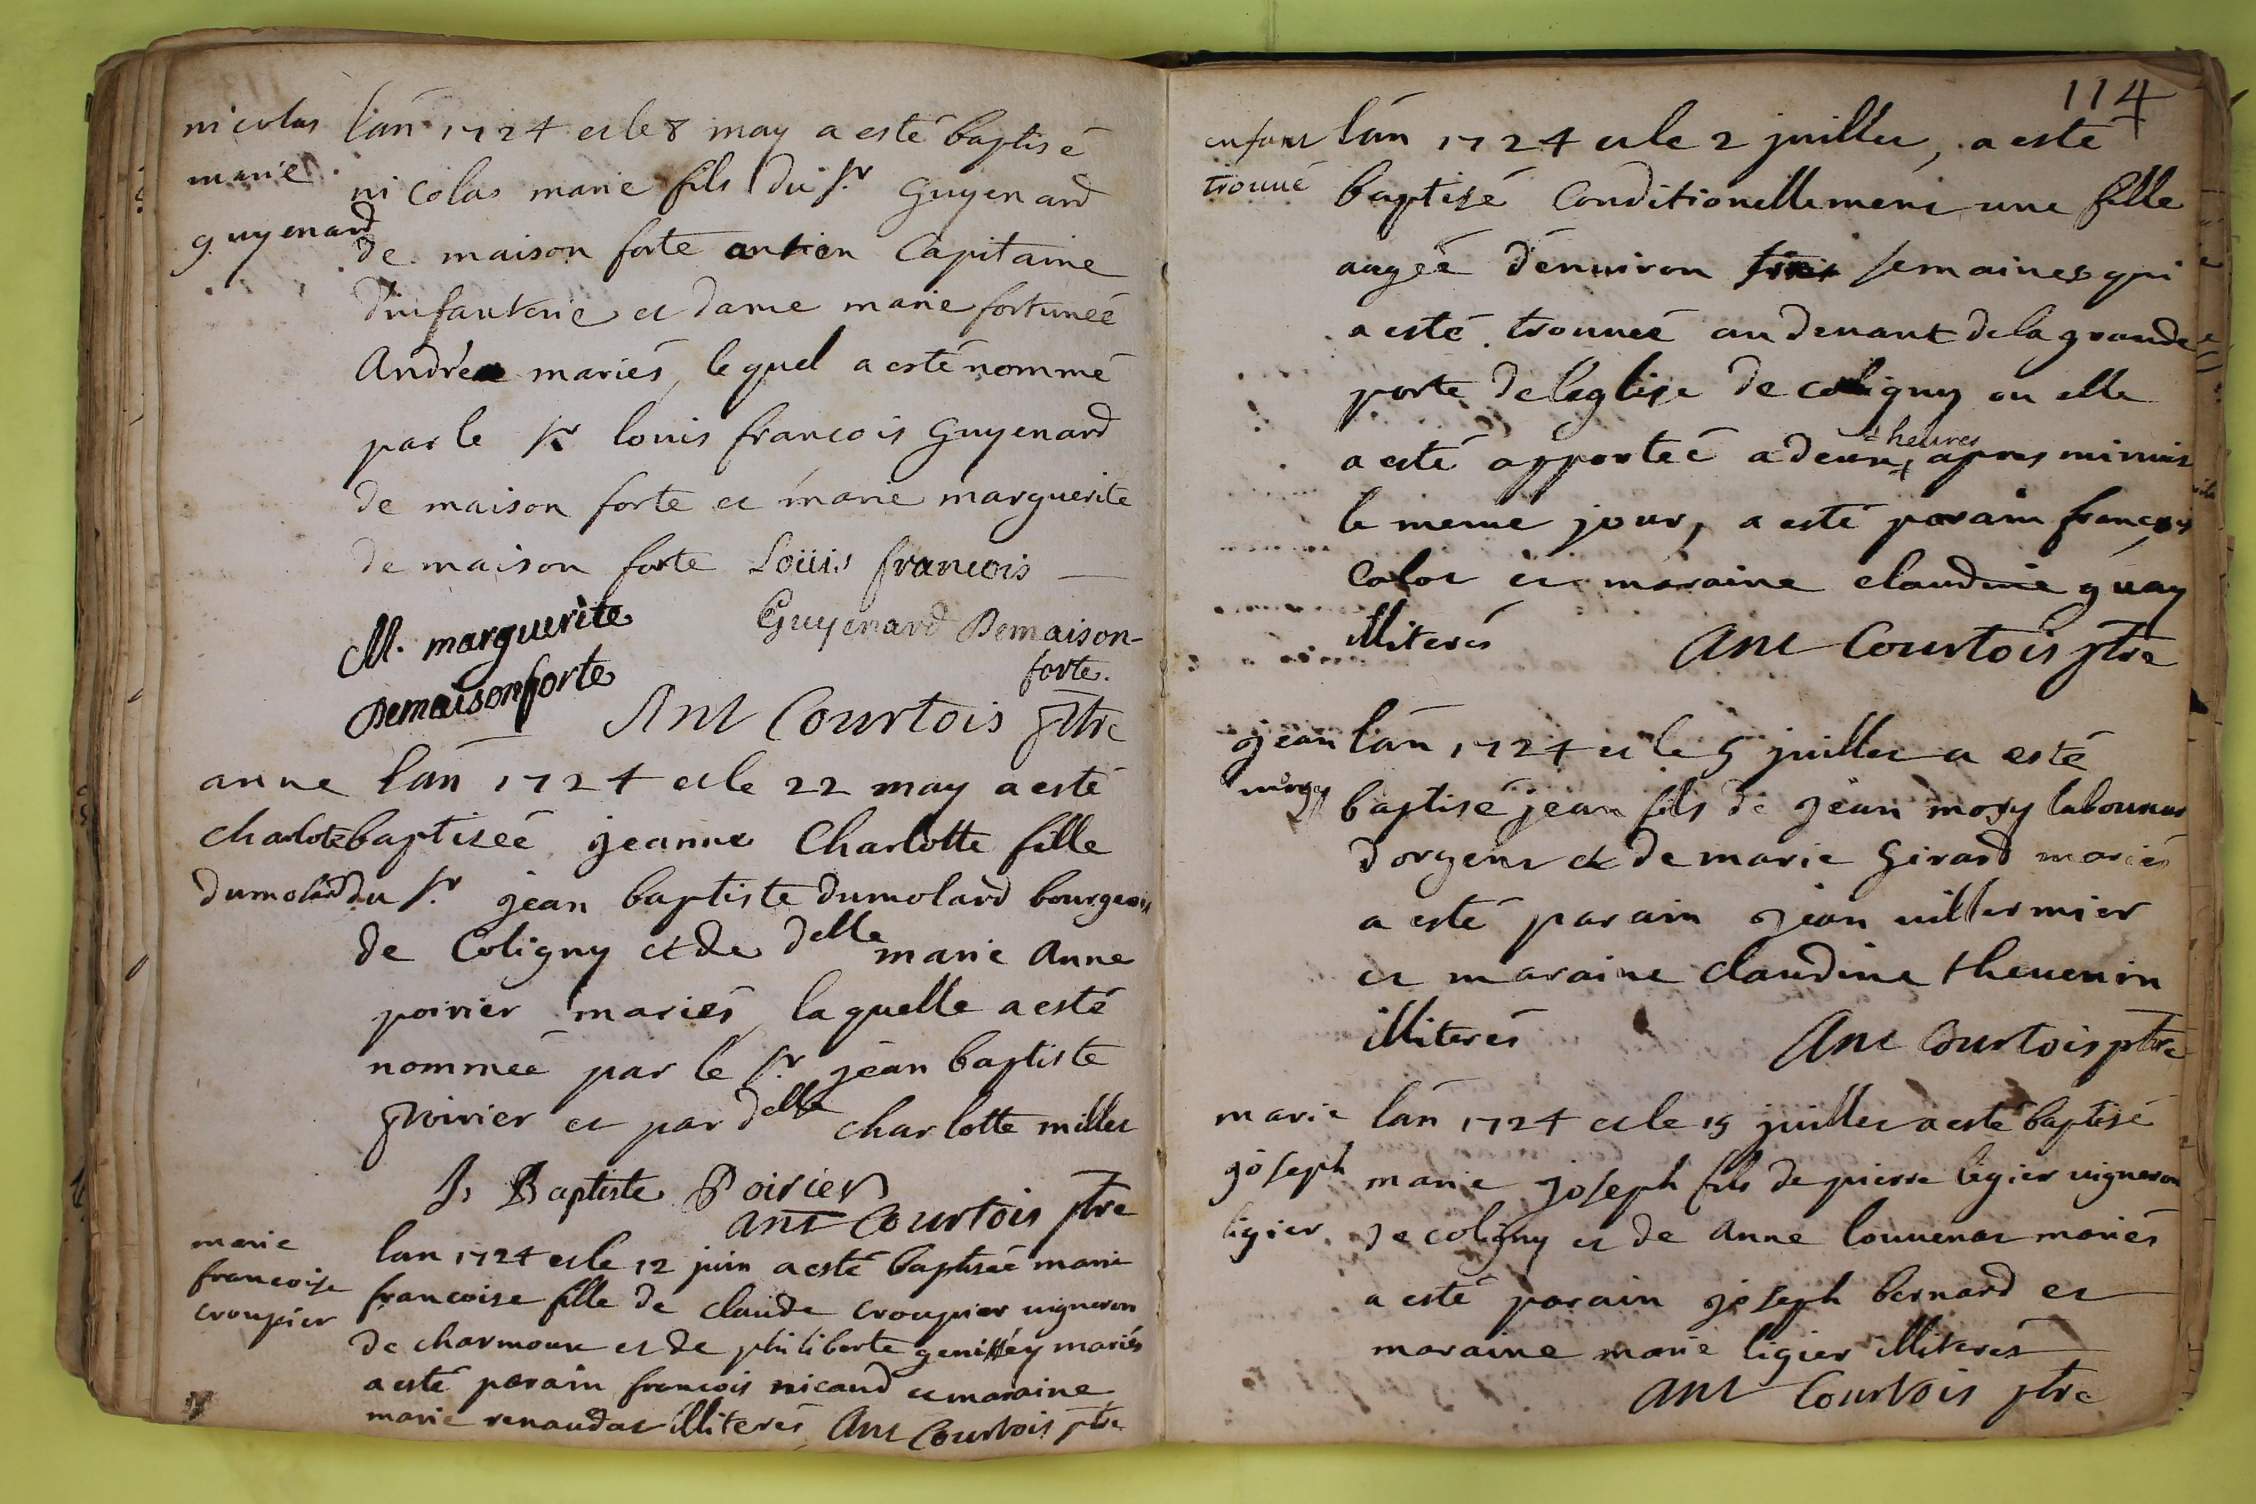 nicolas
marie
guyenard
l'an 1724 et le 8 may a esté baptisé
nicolas marie fils du sr Guyenard
de maison forte antien Capitaine
d'infanterie et dame marie fortuneé
Andréa mariés, le quel a esté nommé
par le sr louis françois Guyenard
de maison forte et marie marguerite
de maison forte Loüis francois
M. marguerite
Demaisonforte
Guyenard Demaison-
forte.
Ant Courtois ptre
anne
charlote
dumolard
l'an 1724 et le 22 may a esté
baptiseé jeanne Charlotte fille
du sr jean baptiste dumolard bourgeois
de Coligny et de delle marie Anne
poirier mariés, laquelle a esté
nommeé par le sr jean baptiste
poirier et par delle charlotte millet
Js Baptiste Poirier
ant Courtois ptre
marie
francoise
croupier
l'an 1724 et le 12 juin a esté baptiseé marie
francoise fille de claude croupier uigneron
de charmoux et de philiberte mariés
a esté parain francois nicaud et maraine
marie renaudat illiterés, Ant Courtois ptre
114
enfant
trouué
l'án 1724 et le 2 juillet, a esté
baptisé Conditionellement une fille
augeé d'enuiron semaines qui
a esté trouueé au deuant de la grande
porte de leglise de coligny ou elle
a esté apporteé a deux heures apres minuit
le meme jour, a esté parain françois
Colot et maraine claudine guay
illiterés Ant Courtois ptre
jean
l'án 1724 et le 5 juillet a esté
baptisé jean fils de jean laboureur
d'orgent et de marie Girard mariés
a esté parain jean uillermier
et maraine claudine theuenin
illiterés Ant Courtois ptre
marie
joseph
ligier
l'án 1724 et le 15 juillet a esté baptisé
marie joseph fils de pierre ligier uigneron
de coligny et de Anne louuenat mariés
a esté parain joseph bernard et
maraine marie ligier illiterés
Ant Courtois ptre